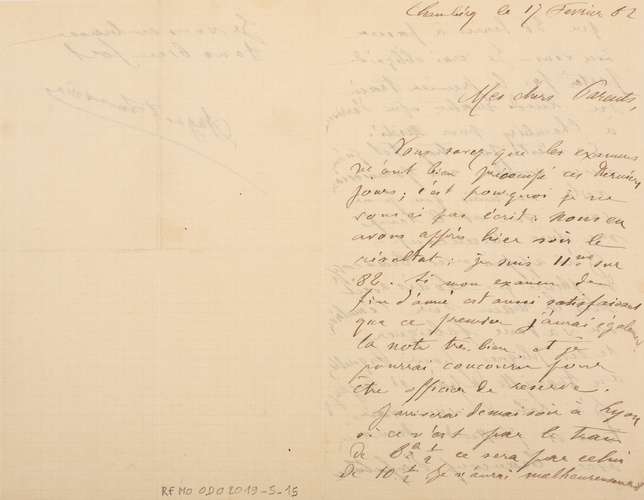 Chambéry le 17 Fevrier 82
Mes chers Parents,
Vous savez que les examens
m'ont bien préoccupé ces derniers
jours; c'est pourquoi je ne
vous ai pas écrit. Nous en
avons appris hier soir le
résultat: je suis 11me sur
82. Si mon examen de
fin d'année est aussi satisfaisant
que ce premier j'aurai également
la note très-bien et je
pourrai concourir pour
être officier de reserve.
J'arriverai demain soir à Lyon
si ce n'est par le train
de 8h 1/2 ce sera par celui
de 10 1/2 Je n'aurai malheureusement
RFMO ODO 2019-5-15